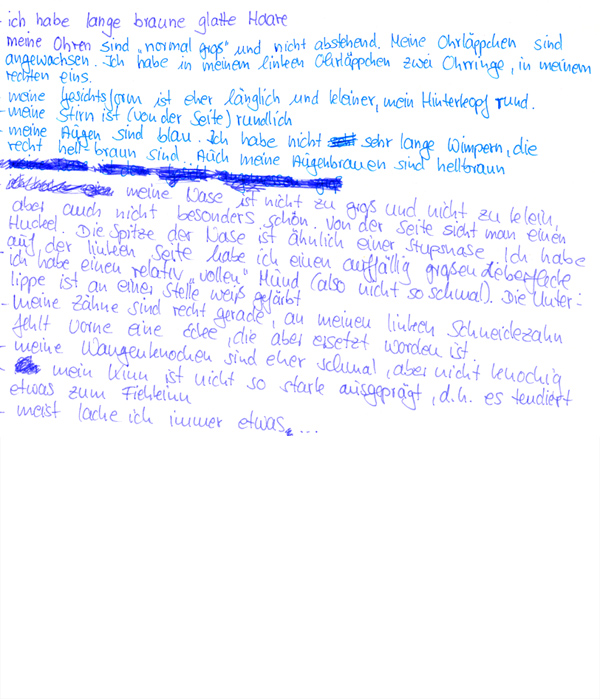 - ich habe lange braune glatte Haare
meine Ohren sind „normal groß" und nicht abstehend. Meine Ohrläppchen sind
angewachsen. Ich habe in meinem linken Ohrläppchen zwei Ohrringe, in meinem
rechten eins.
- meine Gesichtsform ist eher länglich und kleiner, mein Hinterkopf rund.
- meine Stirn ist (von der Seite) rundlich
- meine Augen sind blau. Ich habe nicht sehr lange Wimpern, die
recht hell-braun sind. Auch meine Augenbrauen sind hellbraun
- meine Nase ist nicht zu groß und nicht zu klein,
aber auch nicht besonders schön. Von der Seite sieht man einen
Huckel. Die Spitze der Nase ist ähnlich einer Stupsnase. Ich habe
auf der linken Seite habe ich einen auffällig großen Leberfleck
- ich habe einen relativ „vollen" Mund (also nicht so schmal). Die Unter-
lippe ist an einer Stelle weiß gefärbt
- meine Zähne sind recht gerade, an meinen linken Schneidezahn
fehlt vorne eine Ecke, die aber ersetzt worden ist.
- meine Wangenknochen sind eher schmal, aber nicht knochig
- mein Kinn ist nicht so stark ausgeprägt, d.h. es tendiert
etwas zum
- meist lache ich immer etwas ...